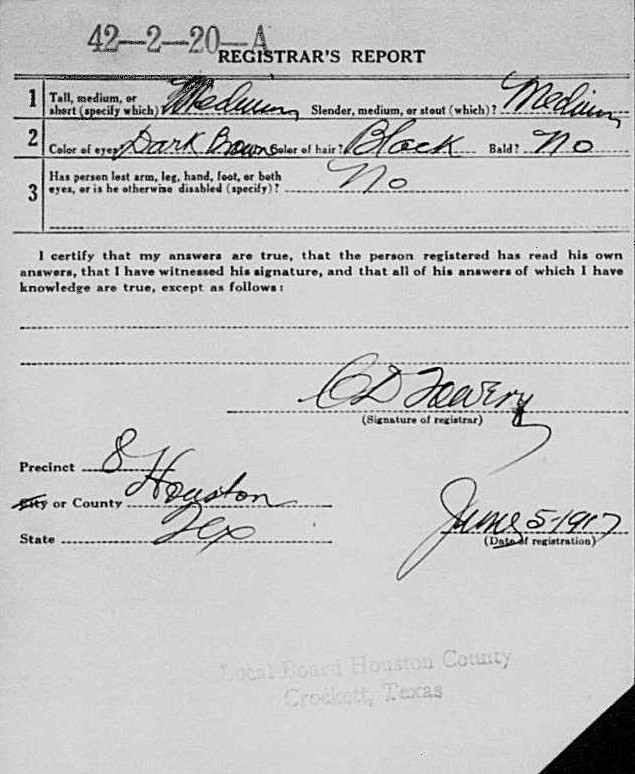 42-2-20-A
REGISTRAR'S REPORT
1 Tall, medium, or short (specify which) Medium Slender, medium, or stout (which)? Medium
2 Color of eyes Dark Brown Color of hair? Black Bald? No
3 Has person lost arm, leg, hand, foot, or both
eyes, or is he otherwise disabled (specify)? No
I certify that my answers are true, that the person registered has read his own
answers, that I have witnessed his signature, and that all of his answers of which I have
knowledge are true, except as follows:
CD Towery
(Signature of registrar)
Precinct 8
City or County Houston
State Tex
June 5-1917
(Date of registration)
Local Board Houston County
Crockett, Texas